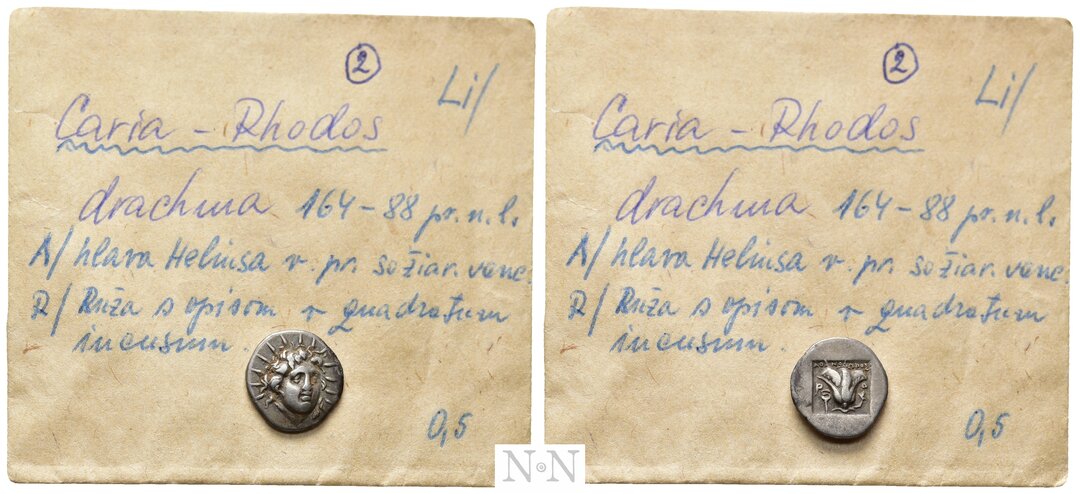 2
Li/
Caria - Rhodos
drachma 164-88 pr. n. l.
A/ hlava Heliosa v. pr. so žiar. venc.
R/ Ruža s opisom v quadratum
incusum.
0,5
2
Li/
Caria - Rhodos
drachma 164-88 pr. n. l.
A/ hlava Heliosa v. pr. so žiar. venc.
R/ Ruža s opisom v quadratum
incusum.
0,5
N N